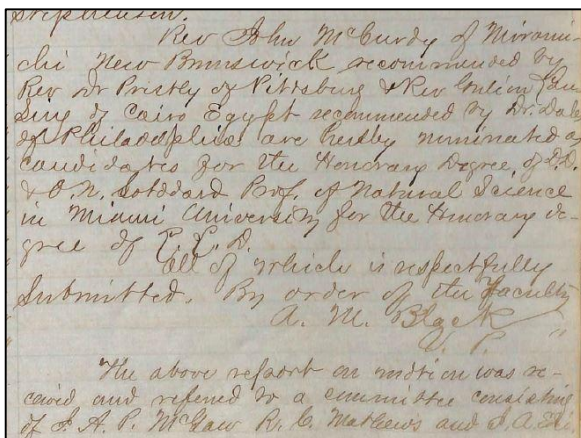 Stephenson.
Rev John McCurdy of Mirami-
chi New Brunswick recommended by
Rev Dr Pristly of Pittsburg & Rev
Sing of Cairo Egypt recommended by Dr. Dale
of Philadelphia are hereby nominated as
candidates for the Honorary Degree of D.D.
& O. N. Stoddard Prof. of Natural Science
in Miami University for the Honorary de-
gree of L. L. D.
All of which is respectfully
Submitted. By order of the Faculty
A. M. Black
V. P.
The above report on motion was re-
ceived and refered to a committee consisting
of J. A. P. McGaw R. C. Mathews and J. A.